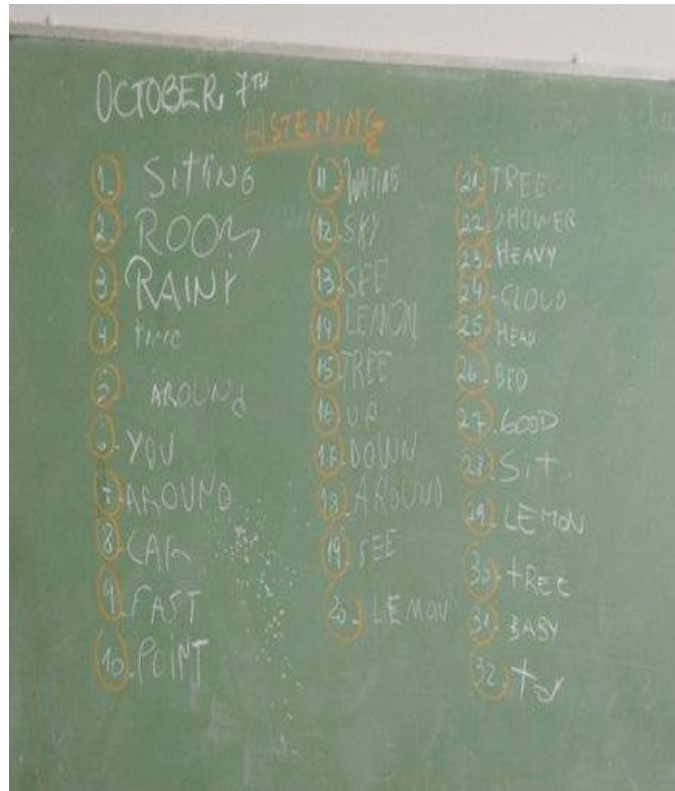 OCTOBER, 7TH
LISTENING
1. SITTING
2. ROOM
3. RAINY
4. time
5. AROUND
6. YOU
7. AROUND
8. CAR
9. FAST
10. POINT
11. WAITING
12. SKY
13. SEE
14. LEMON
15. TREE
16. UP
17. DOWN
18. AROUND
19. SEE
20. LEMON
21. TREE
22. SHOWER
23. HEAVY
24. CLOUD
25. HEAD
26. BED
27. GOOD
28. SIT
29. LEMON
30. tREE
31. BABY
32.